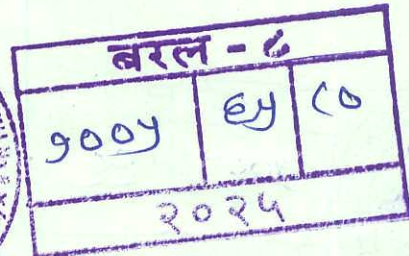 बरल - ८
१००५ ६५ ८०
२०२५